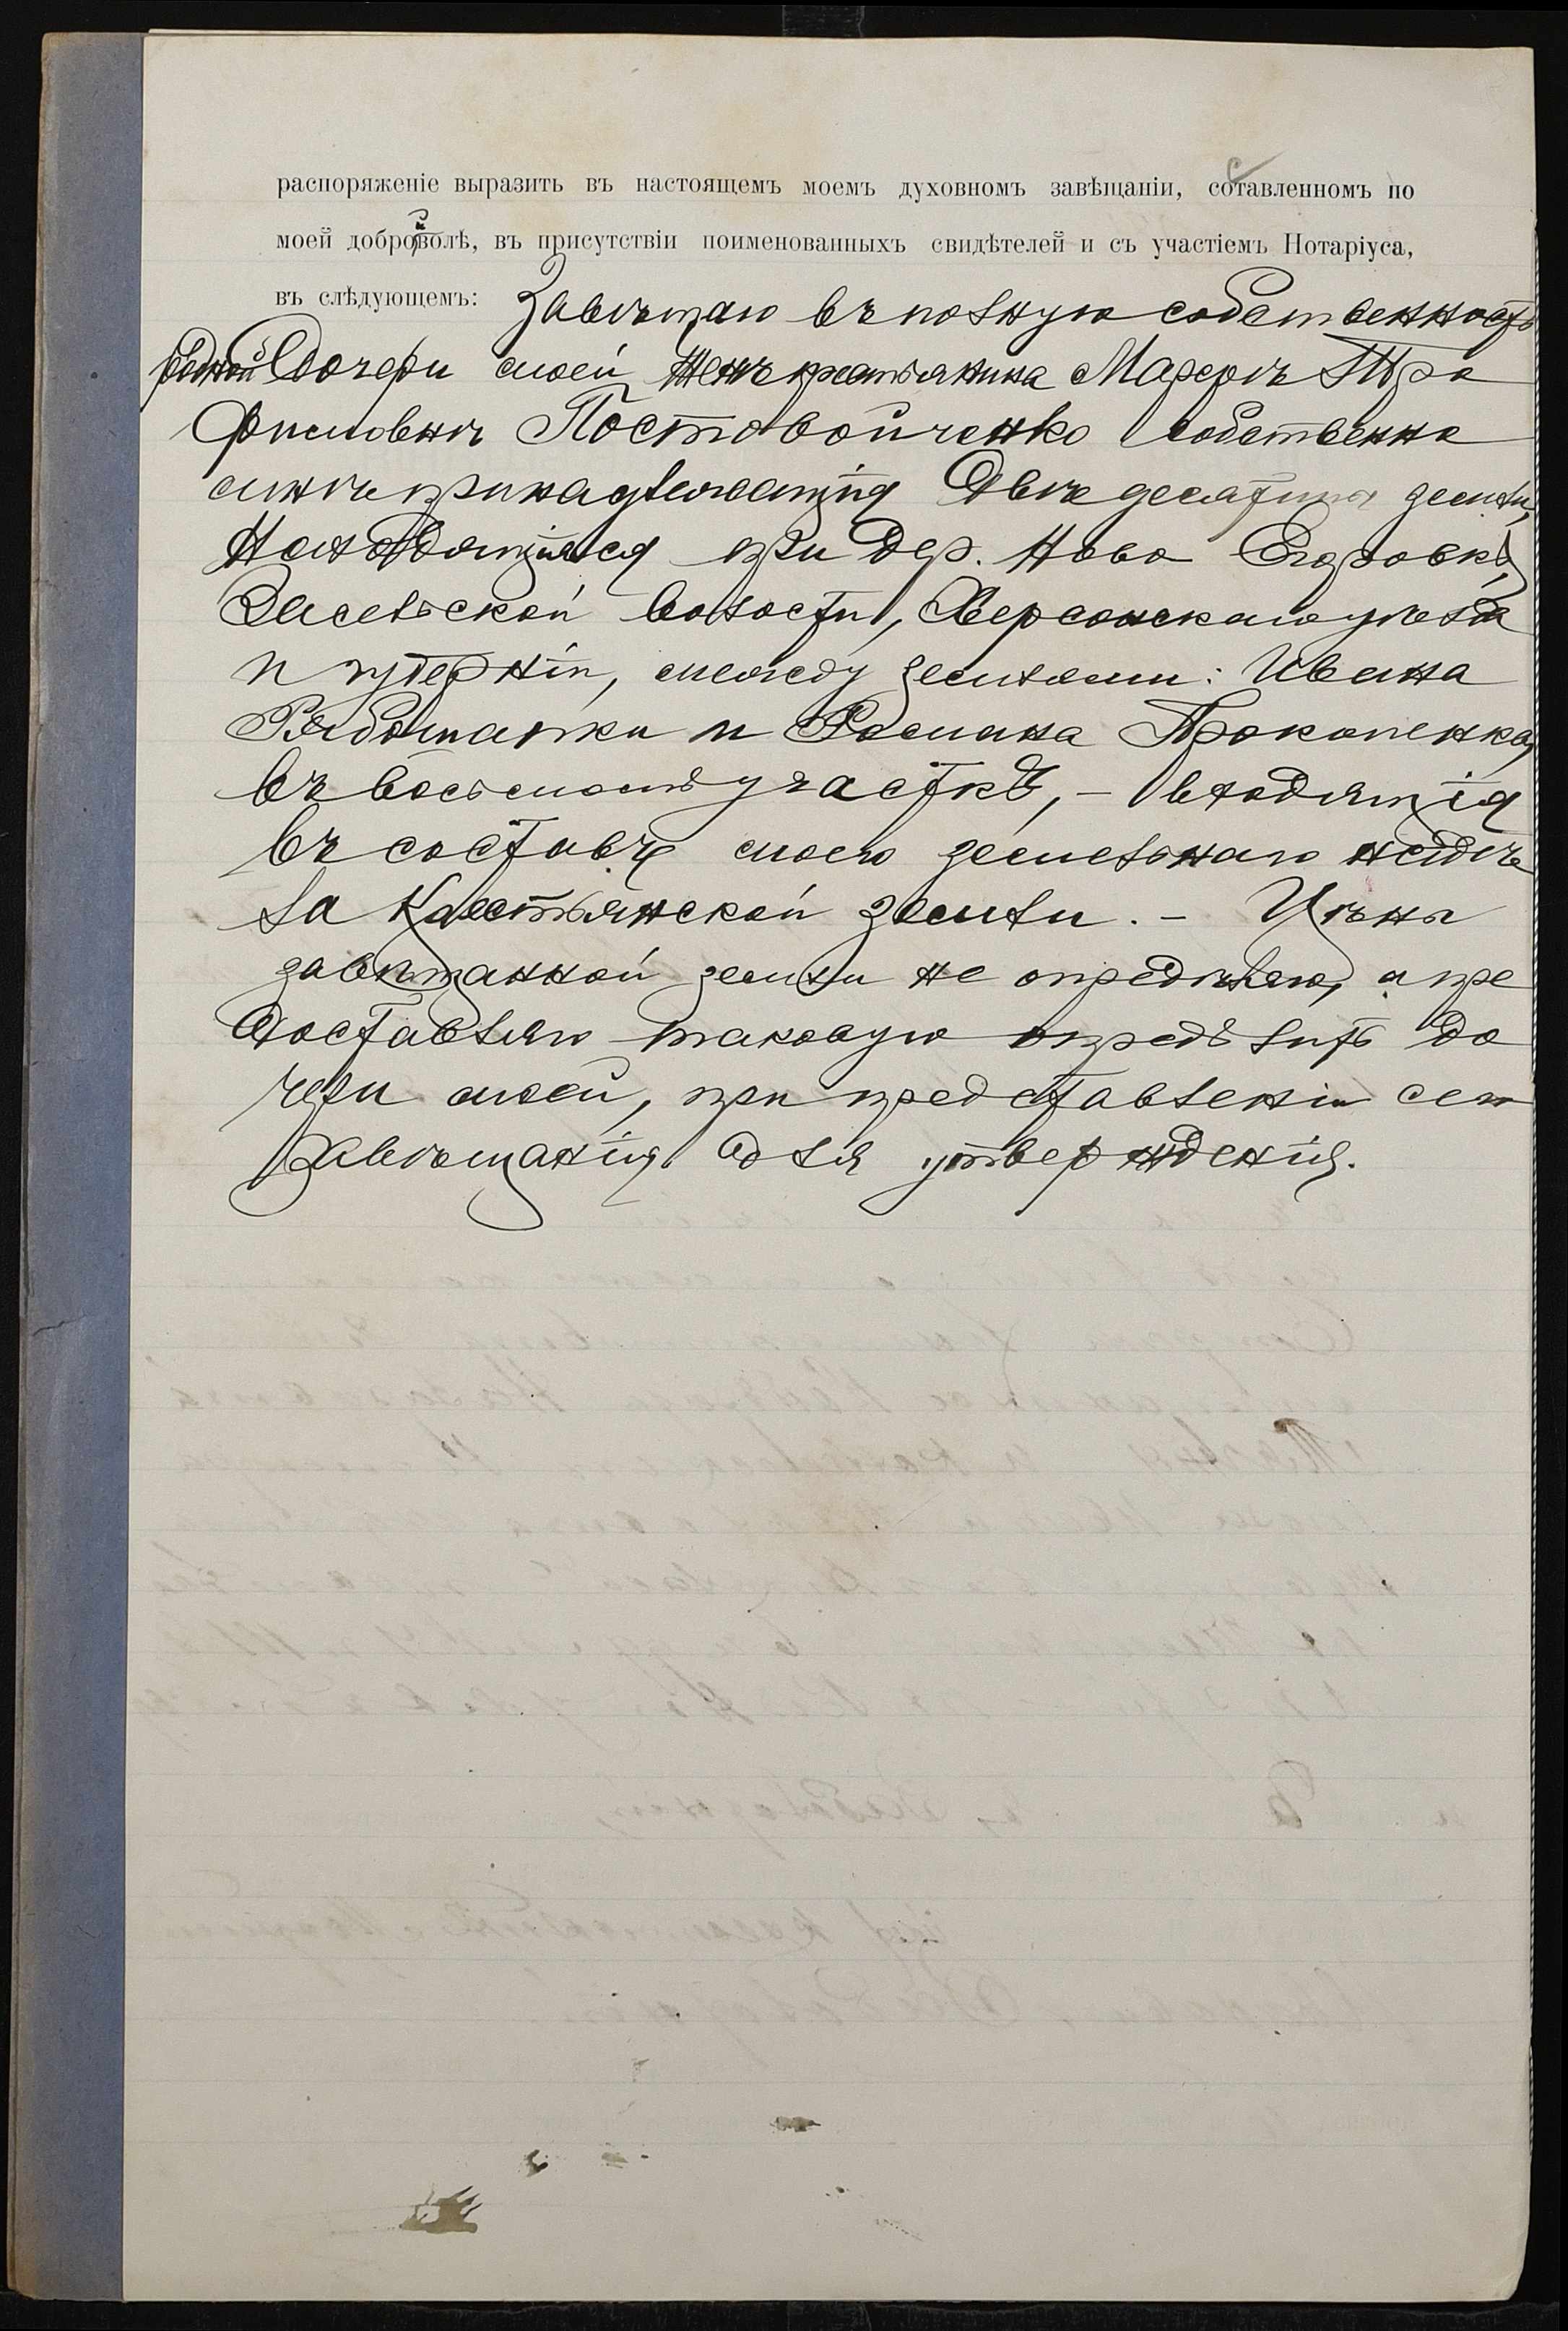 распоряженіе выразить въ настоящемъ моемъ духовномъ завѣщаніи, сотавленномъ по
моей доброволѣ, въ присутствіи поименованныхъ свидѣтелей и съ участіемъ Нотаріуса,
въ слѣдующемъ: Завѣщаю въ полную собственность
родной дочери моей женѣ крестьянина Марфѣ Тро
фимовнѣ Постовойченко собственно
мнѣ принадлежащія двѣ десятины земли,
находящіяся при дер. Ново Егоровкѣ,
Засельской волости, Херсонскаго уѣзда
и губерніи, между землями: Ивана
Рябошапки и Романа Прокопенка,
въ восьмомъ участкѣ, - входящія
въ составъ моего земельнаго надѣ
ла крестьянской земли. - Цѣны
завѣщанной земли не опредѣляю, а пре
доставляю таковую опредѣлить до
чери моей, при представленіи сего
завѣщанія для утвержденія.